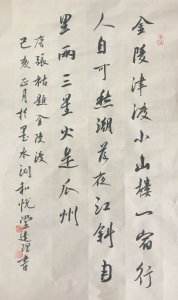 金陵津渡小山楼一宿行
人自可愁潮落夜江斜月
里兩三星火是瓜州
唐張祜題金陵渡
己亥正月於墨水湖和悦堂書